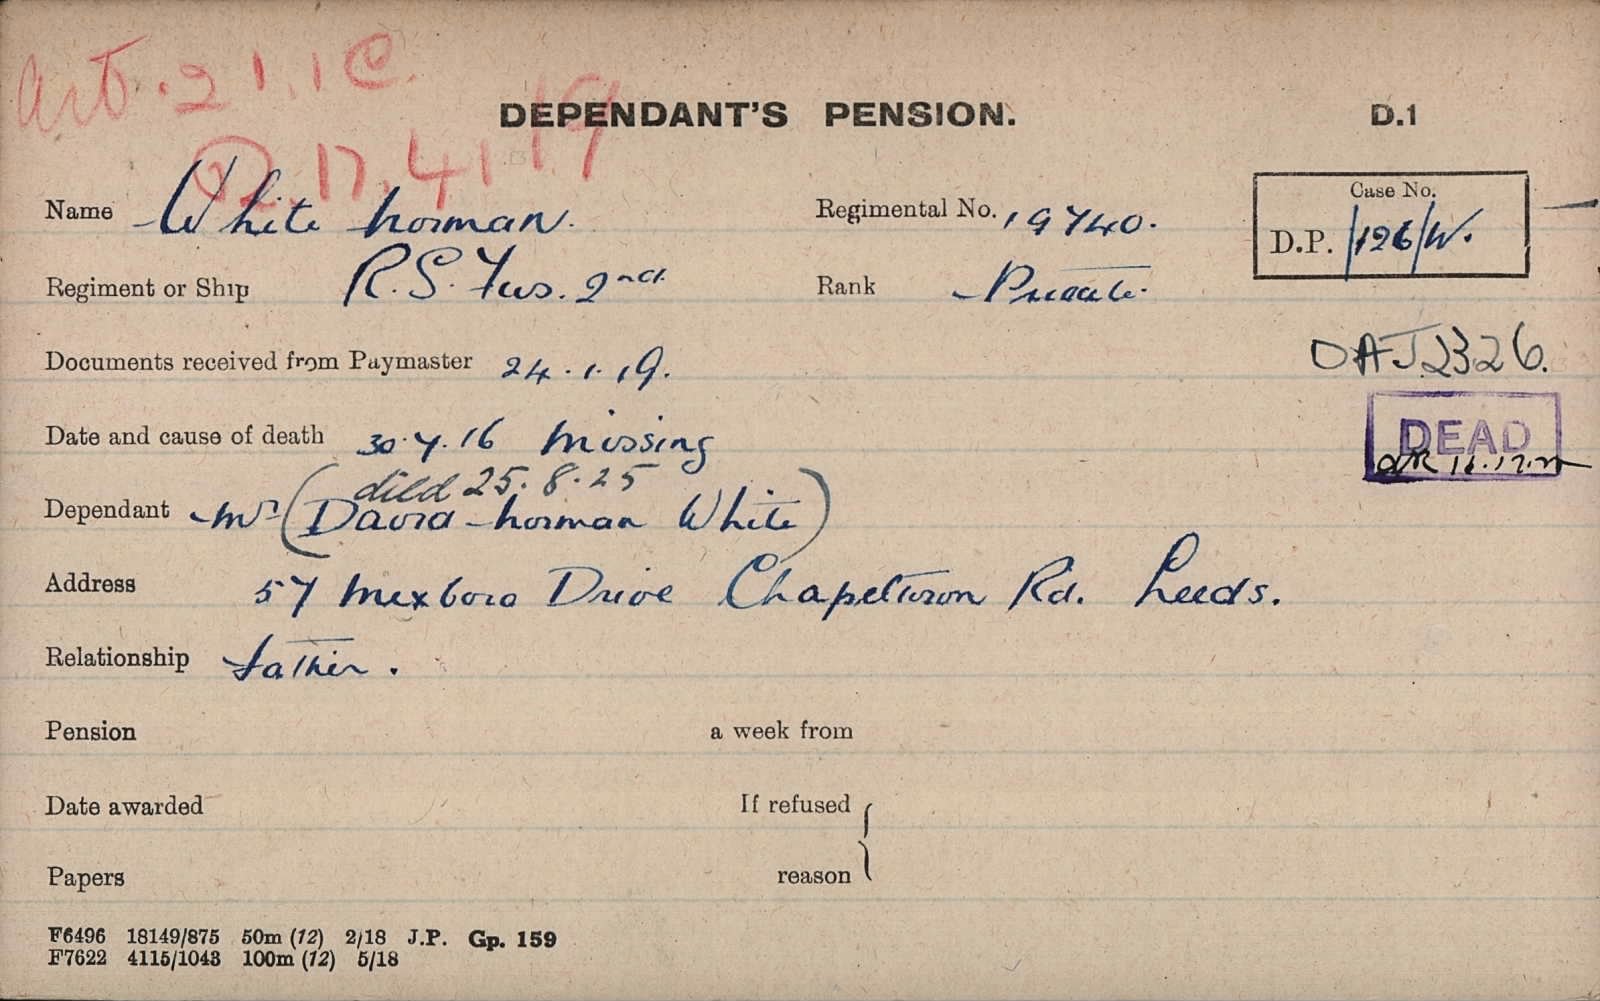 Art. 21.1C.
DEPENDANT'S PENSION. D.1
17.4.19
Name White Norman. Regimental No. 19740. Case No. D.P. /126/W.
Regiment or Ship R.S. Fus. 2nd. Rank Private.
Documents received from Paymaster 24.1.19. DAJ2326.
Date and cause of death 30.7.16 Missing DEAD
died 25.8.25
Dependant Mr (David Norman White)
Address 57 Mexboro Drive Chapeltown Rd. Leeds.
Relationship Father.
Pension a week from
Date awarded If refused
Papers reason
F6496 18149/875 50m (12) 2/18 J.P. Gp. 159
F7622 4115/1043 100m (12) 5/18